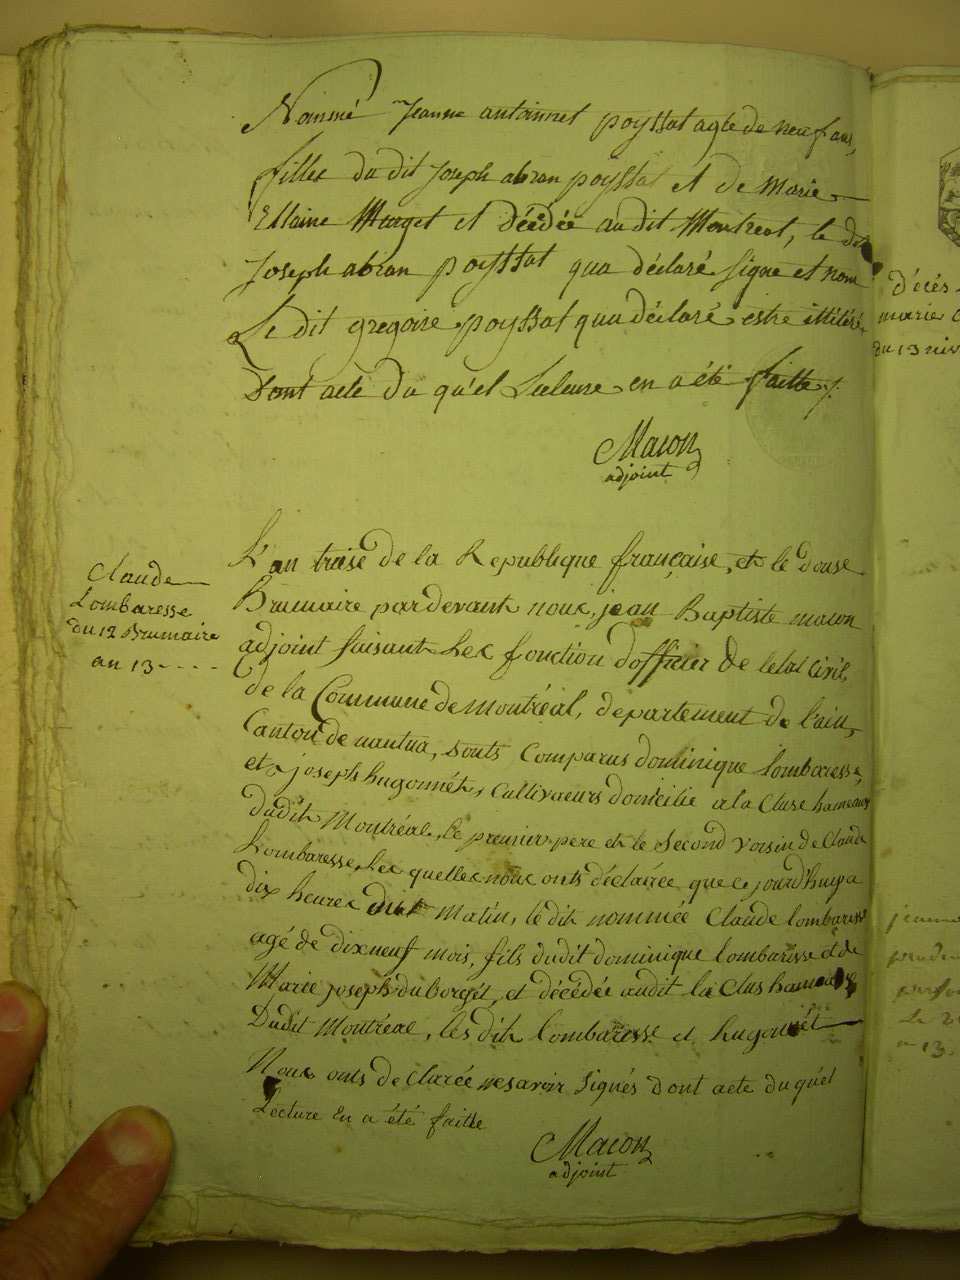 Nommé Jeanne antoinnet poyssat agée de neuf ans,
filles du dit Joseph abran poyssat et de Marie
Ellaine Murget et décédée audit Montreal, le dit
Joseph abran poyssat qua déclaré signe et non
Le dit gregoire poyssat qua déclaré estre illitéré
Dont acte du qu'el Lecture en a été faitte /.
Macon
adjoint
Claude
Lombaresse
du 12 Brumaire
an 13 - - - -
L'an traise de la Republique française, et le douse
Brumaire pardevant nous, jean Baptiste macon
adjoint faisant les fonction dofficier de letat civil,
de la Commune de Montréal, departement de l'ain,
Canton de nantua, sonts Comparus dominique lombaresse,
et joseph hugonnét, Cultivaeurs domicilié a la Cluse hameaux
dudit Montréal, le premier pere et le second voisin de Claude
Lombaresse, les quelles nous onts déclarée que ce jourd'huy a
dix heures du Matin, le dit nommée Claude lombaresse
agé de dixneuf mois, fils dudit dominique lombaresse et de
Marie joseph duborgét, et décédée audit la Clus hameaux
Dudit Montréal, les dit lombaresse et hugonnét
Nous onts de Clarée ne savoir signés Dont acte du quél
Lecture En a été faitte
Macon
adjoint
décés
marie
du 13 niv
jeanne
an 13.